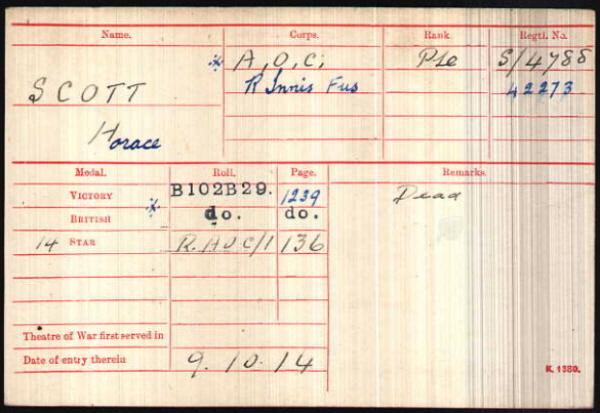 Name. Corps. Rank Regtl. No.
* A.O.C. Pte S/4788
SCOTT R Innis Fus 42273
Horace
Medal. Roll. Page. Remarks.
VICTORY * B102B29. 1239 Dead
BRITISH do. do.
14 STAR R.AOC/1 136
Theatre of War first served in
Date of entry therein 9.10.14
K. 1380.